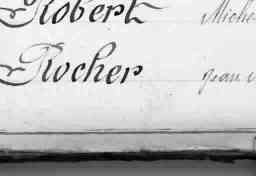 Robert Miche
Rocher Jean